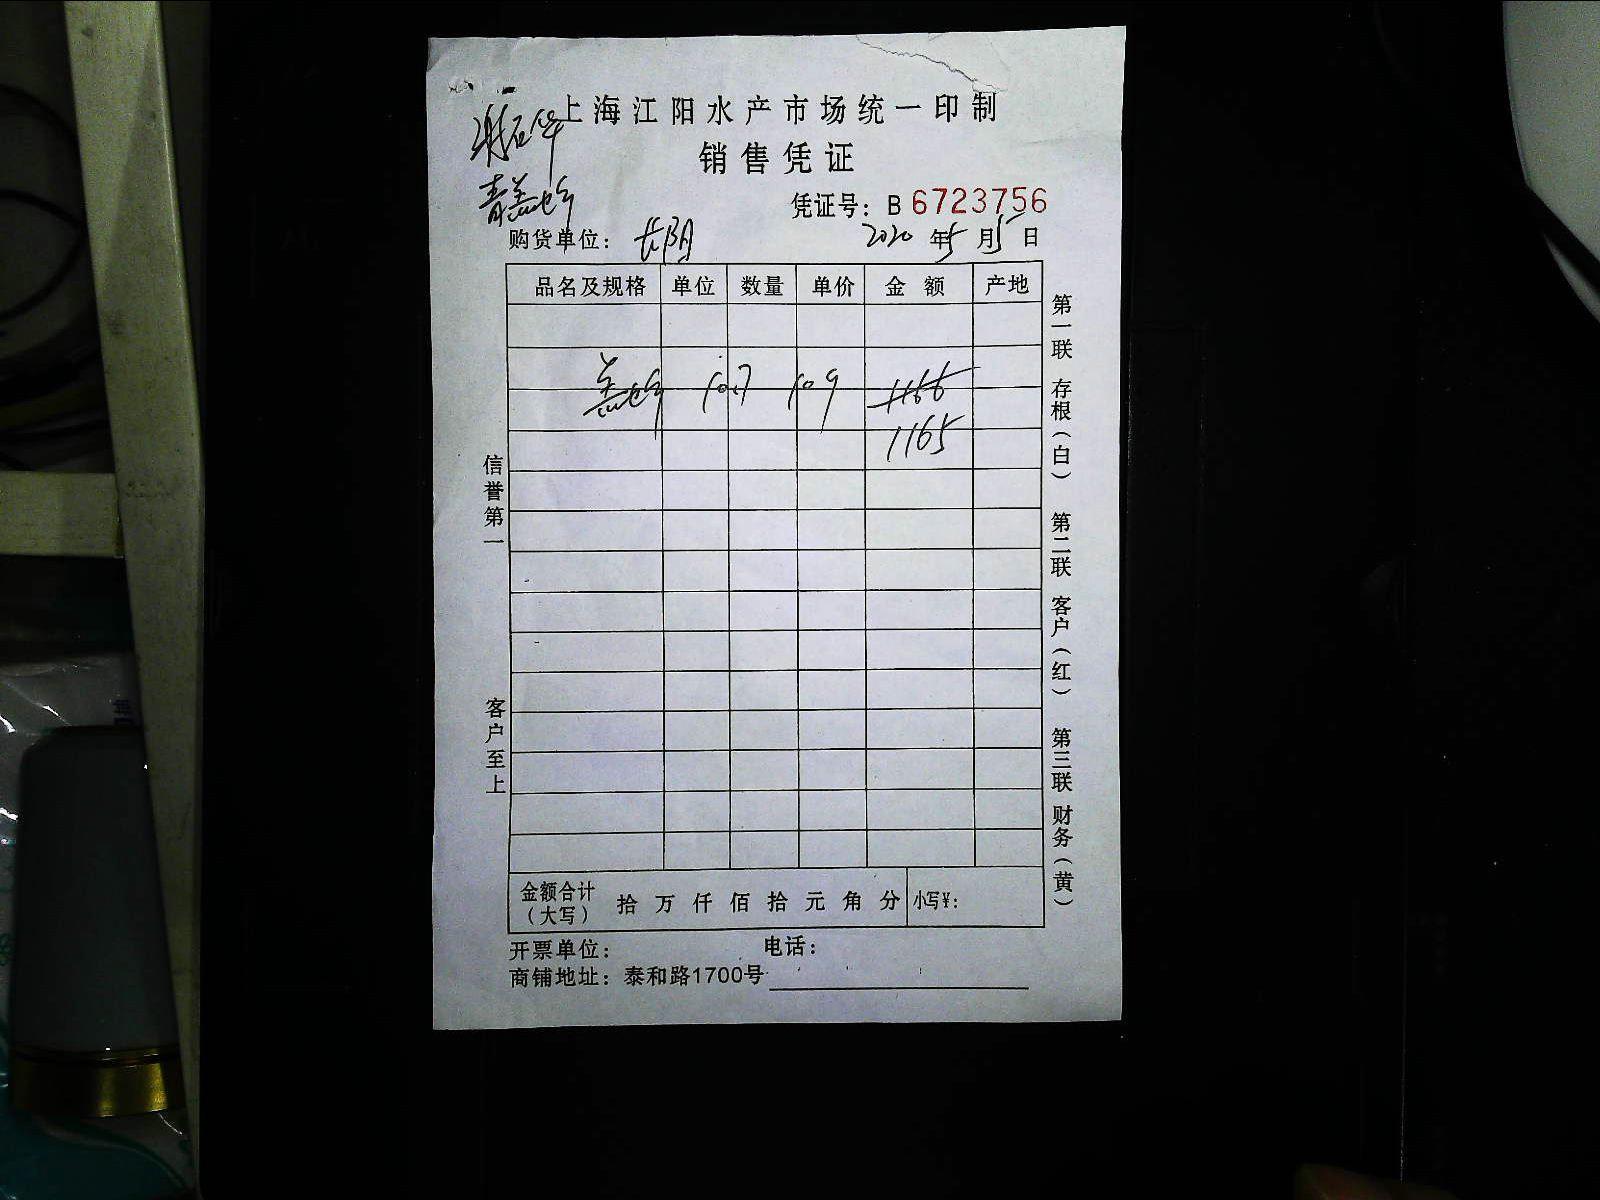 上海江阳水产市场统一印制
销售凭证
青盖蛤
凭证号：B 6723756
购货单位：长阳 2020年5月5日
品名及规格 单位 数量 单价 金额 产地
盖蛤 10.7 109 1166
1165
信誉第一
客户至上
第一联 存根（白） 第二联 客户（红） 第三联 财务（黄）
金额合计（大写） 拾 万 仟 佰 拾 元 角 分 小写¥：
开票单位： 电话：
商铺地址：泰和路1700号